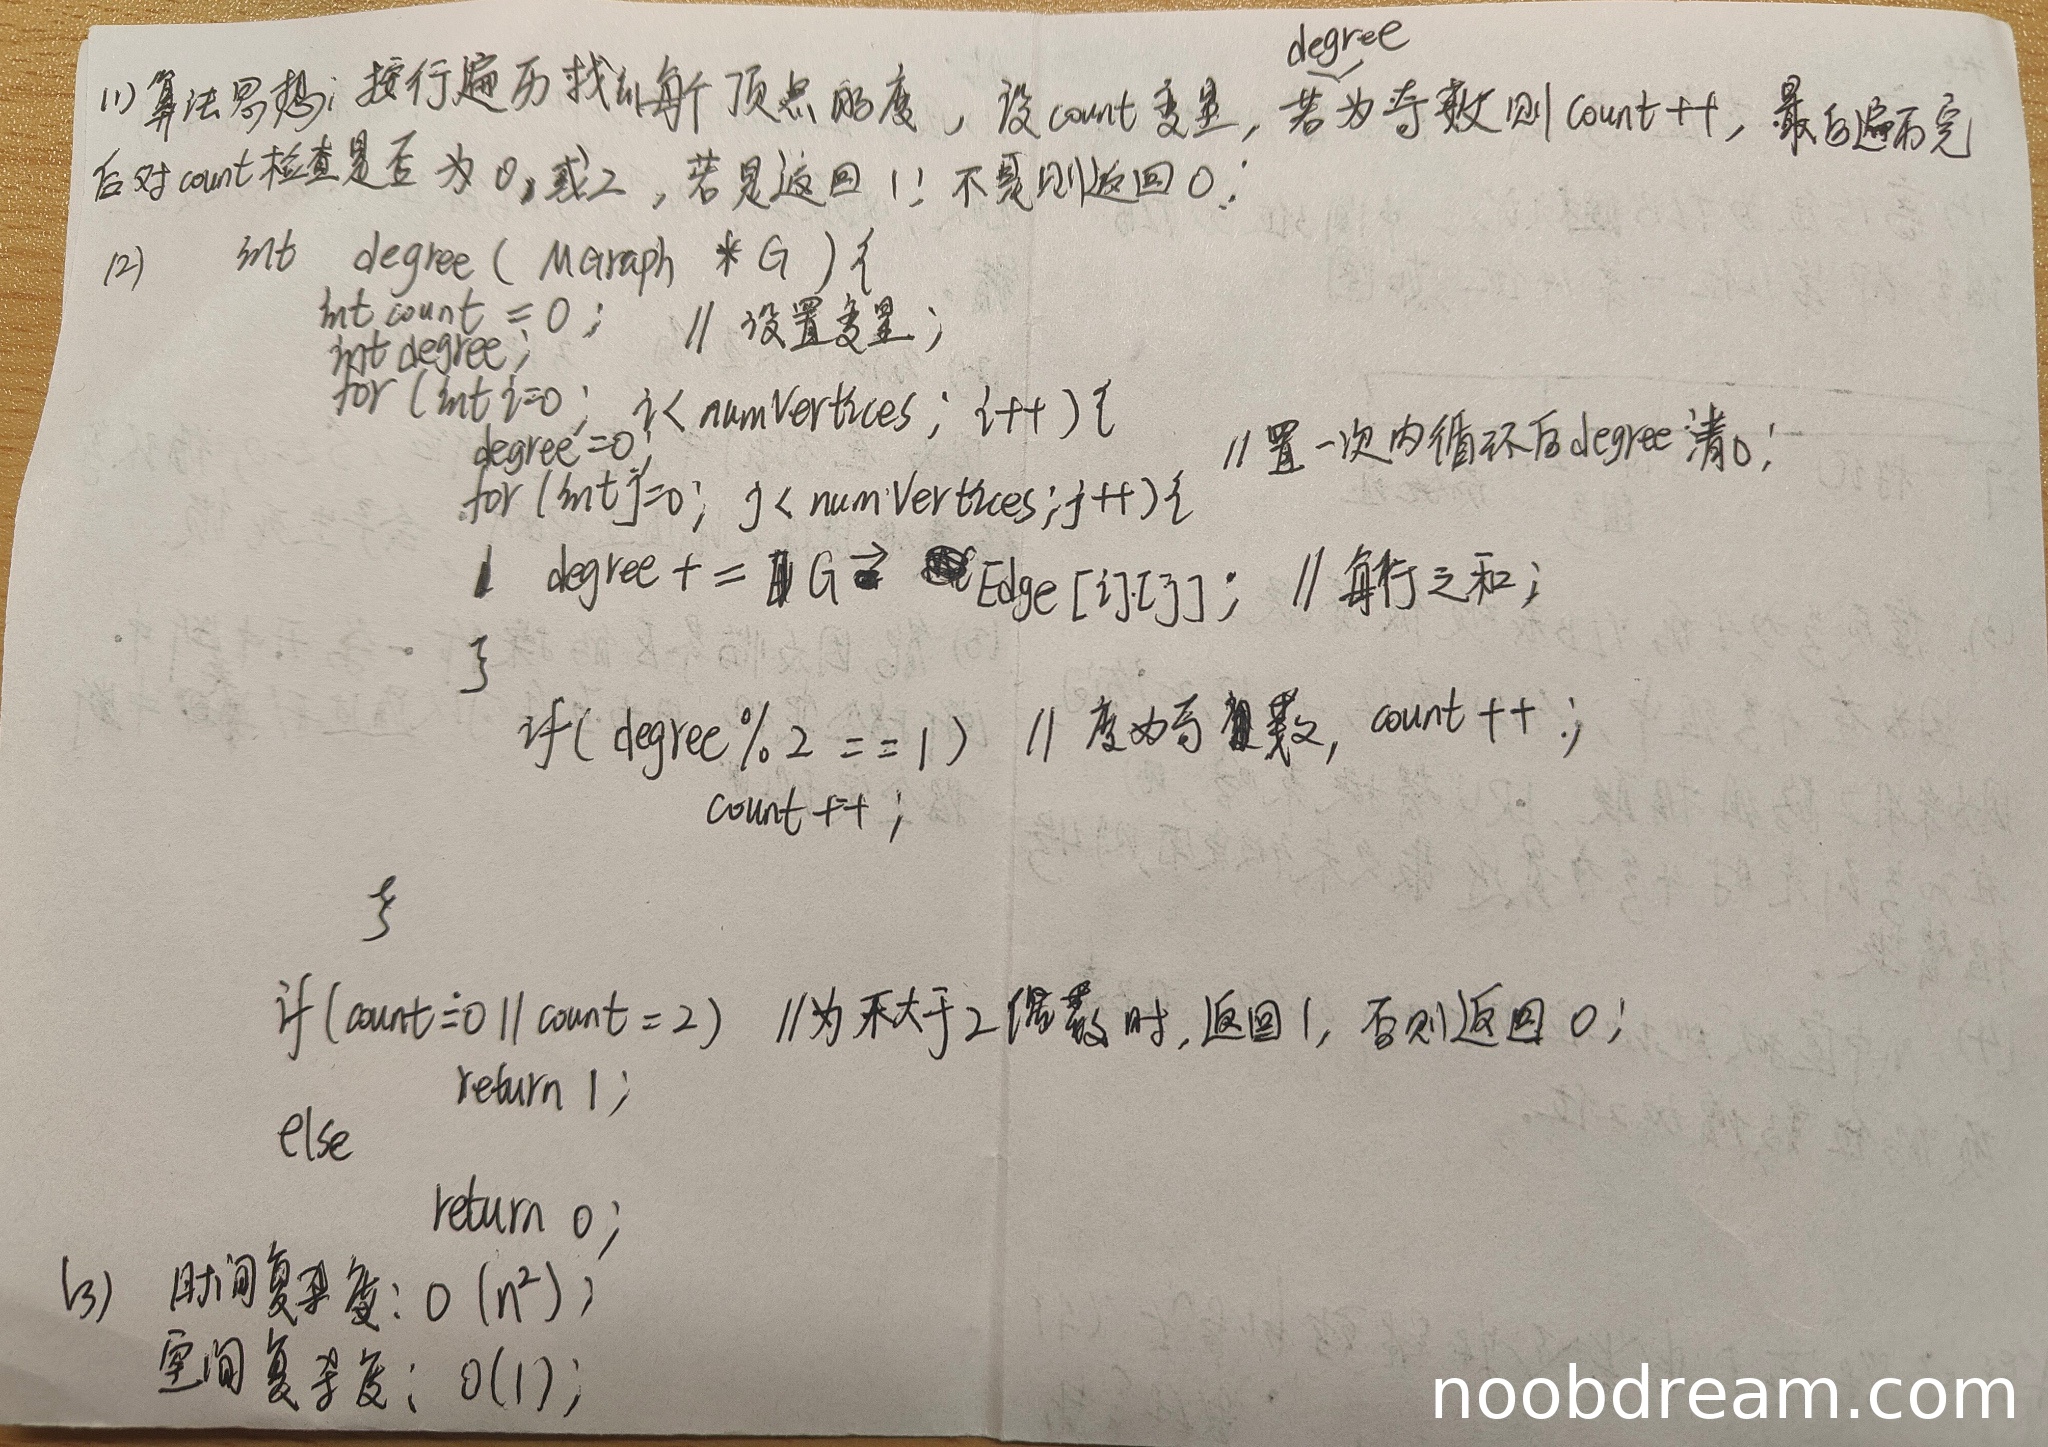 degree
(1) 算法思想: 按行遍历找出每个顶点的度, 设count变量, 若为奇数则count++, 最后遍历完
后对count检查是否为0,或2, 若是返回1; 不是则返回0;
(2) int degree( MGraph *G ){
int count = 0; // 设置变量;
int degree;
for (int i=0; i< numVertices; i++){
degree=0; // 置一次内循环后degree清0;
for (int j=0; j< numVertices; j++){
degree += G→ Edge[i][j]; // 每行之和;
}
if( degree%2 ==1) // 度为奇数, count++;
count++;
}
if(count==0 || count=2) // 为不大于2偶数时, 返回1, 否则返回0;
return 1;
else
return 0;
(3) 时间复杂度: O(n²);
空间复杂度: O(1);
noobdream.com